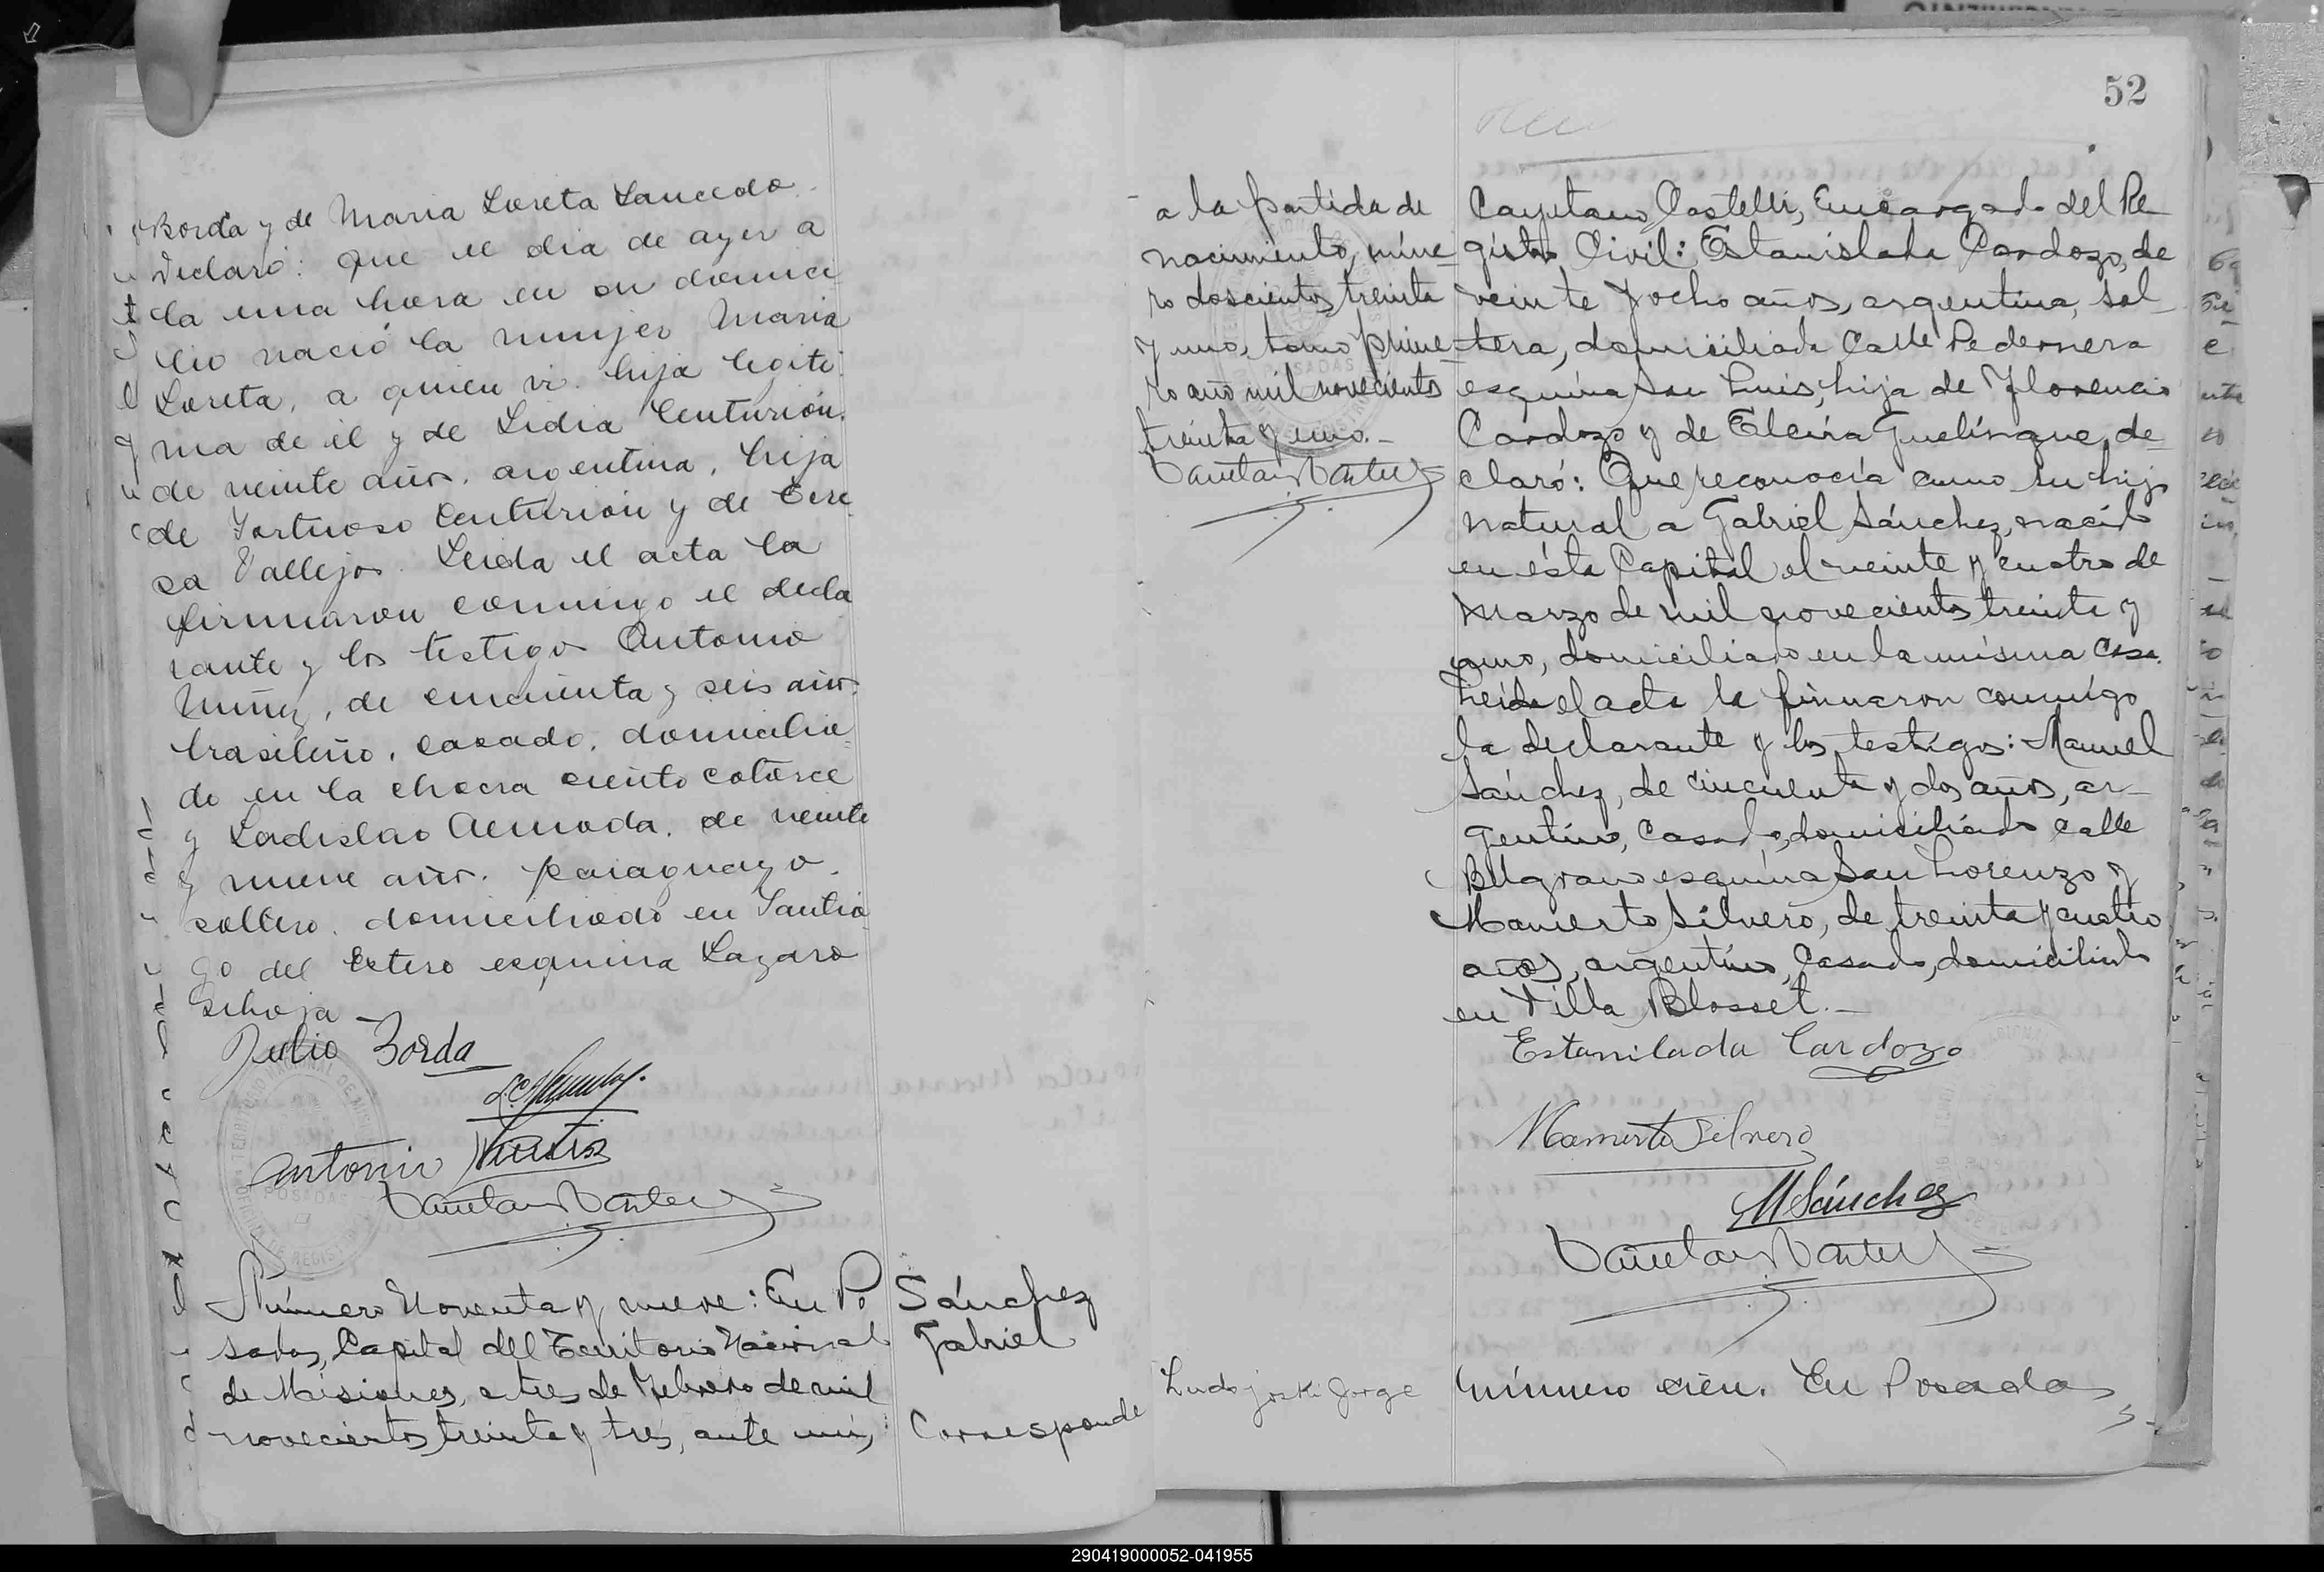 Borda y de Maria Loreta Saucedo.
Declaró: Que el dia de ayer a
la una hora en su domici
lio nació la mujer Maria
Loreta, a quien vi. hija legiti
ma de él y de Lidia Centurión.
de veinte años. argentina, hija
de Fortuoso Centurión y de Tere
sa Vallejos. Leida el acta la
firmaron conmigo el decla
rante y los testigos Antonio
Nuñez, de cincuenta y seis años.
brasileño, casado, domicilia=
do en la chacra ciento catorce
y Ladislao Almada. de veinte
y nueve años. paraguayo.
soltero. domiciliado en Santia
go del Estero esquina Lazaro
Gelhoja
Julio Borda
Antonio
POSADAS
Número Noventa y nueve: En Po
sadas, Capital del Territorio Nacional
de Misiones, a tres de Febrero de mil
novecientos treinta y tres, ante mí,
Sánchez
Gabriel
Corresponde
52
a la partida de
nacimiento, núme-
ro doscientos treinta
y uno, tomo prime-
ro año mil novecientos
treinta y uno.-
Cayetano Castelli, Encargado del Re-
gistro Civil: Estanislada Cardozo, de
veinte y ocho años, argentina, sol-
tera, domiciliada Calle Pedernera
esquina San Luis, hija de Florencio
Cardozo y de Elcira Guelinque, de-
claró: Que reconocía como su hijo
natural a Gabriel Sánchez, nacido
en ésta Capital el veinte y cuatro de
Marzo de mil novecientos treinta y
uno, domiciliado en la misma casa.
Leida el acta la firmaron conmigo
la declarante y los testigos: Manuel
Sánchez, de cincuenta y dos años, ar-
gentino, casado, domiciliado calle
Belgrano esquina San Lorenzo y
Mamerto Silvero, de treinta y cuatro
años, argentino, casado, domiciliado
en Villa Blosset.-
Estanilada Cardozo
Mamerto Silvero
M Sánchez
Ludojoski Jorge
Número cien. En Posadas,
290419000052-041955